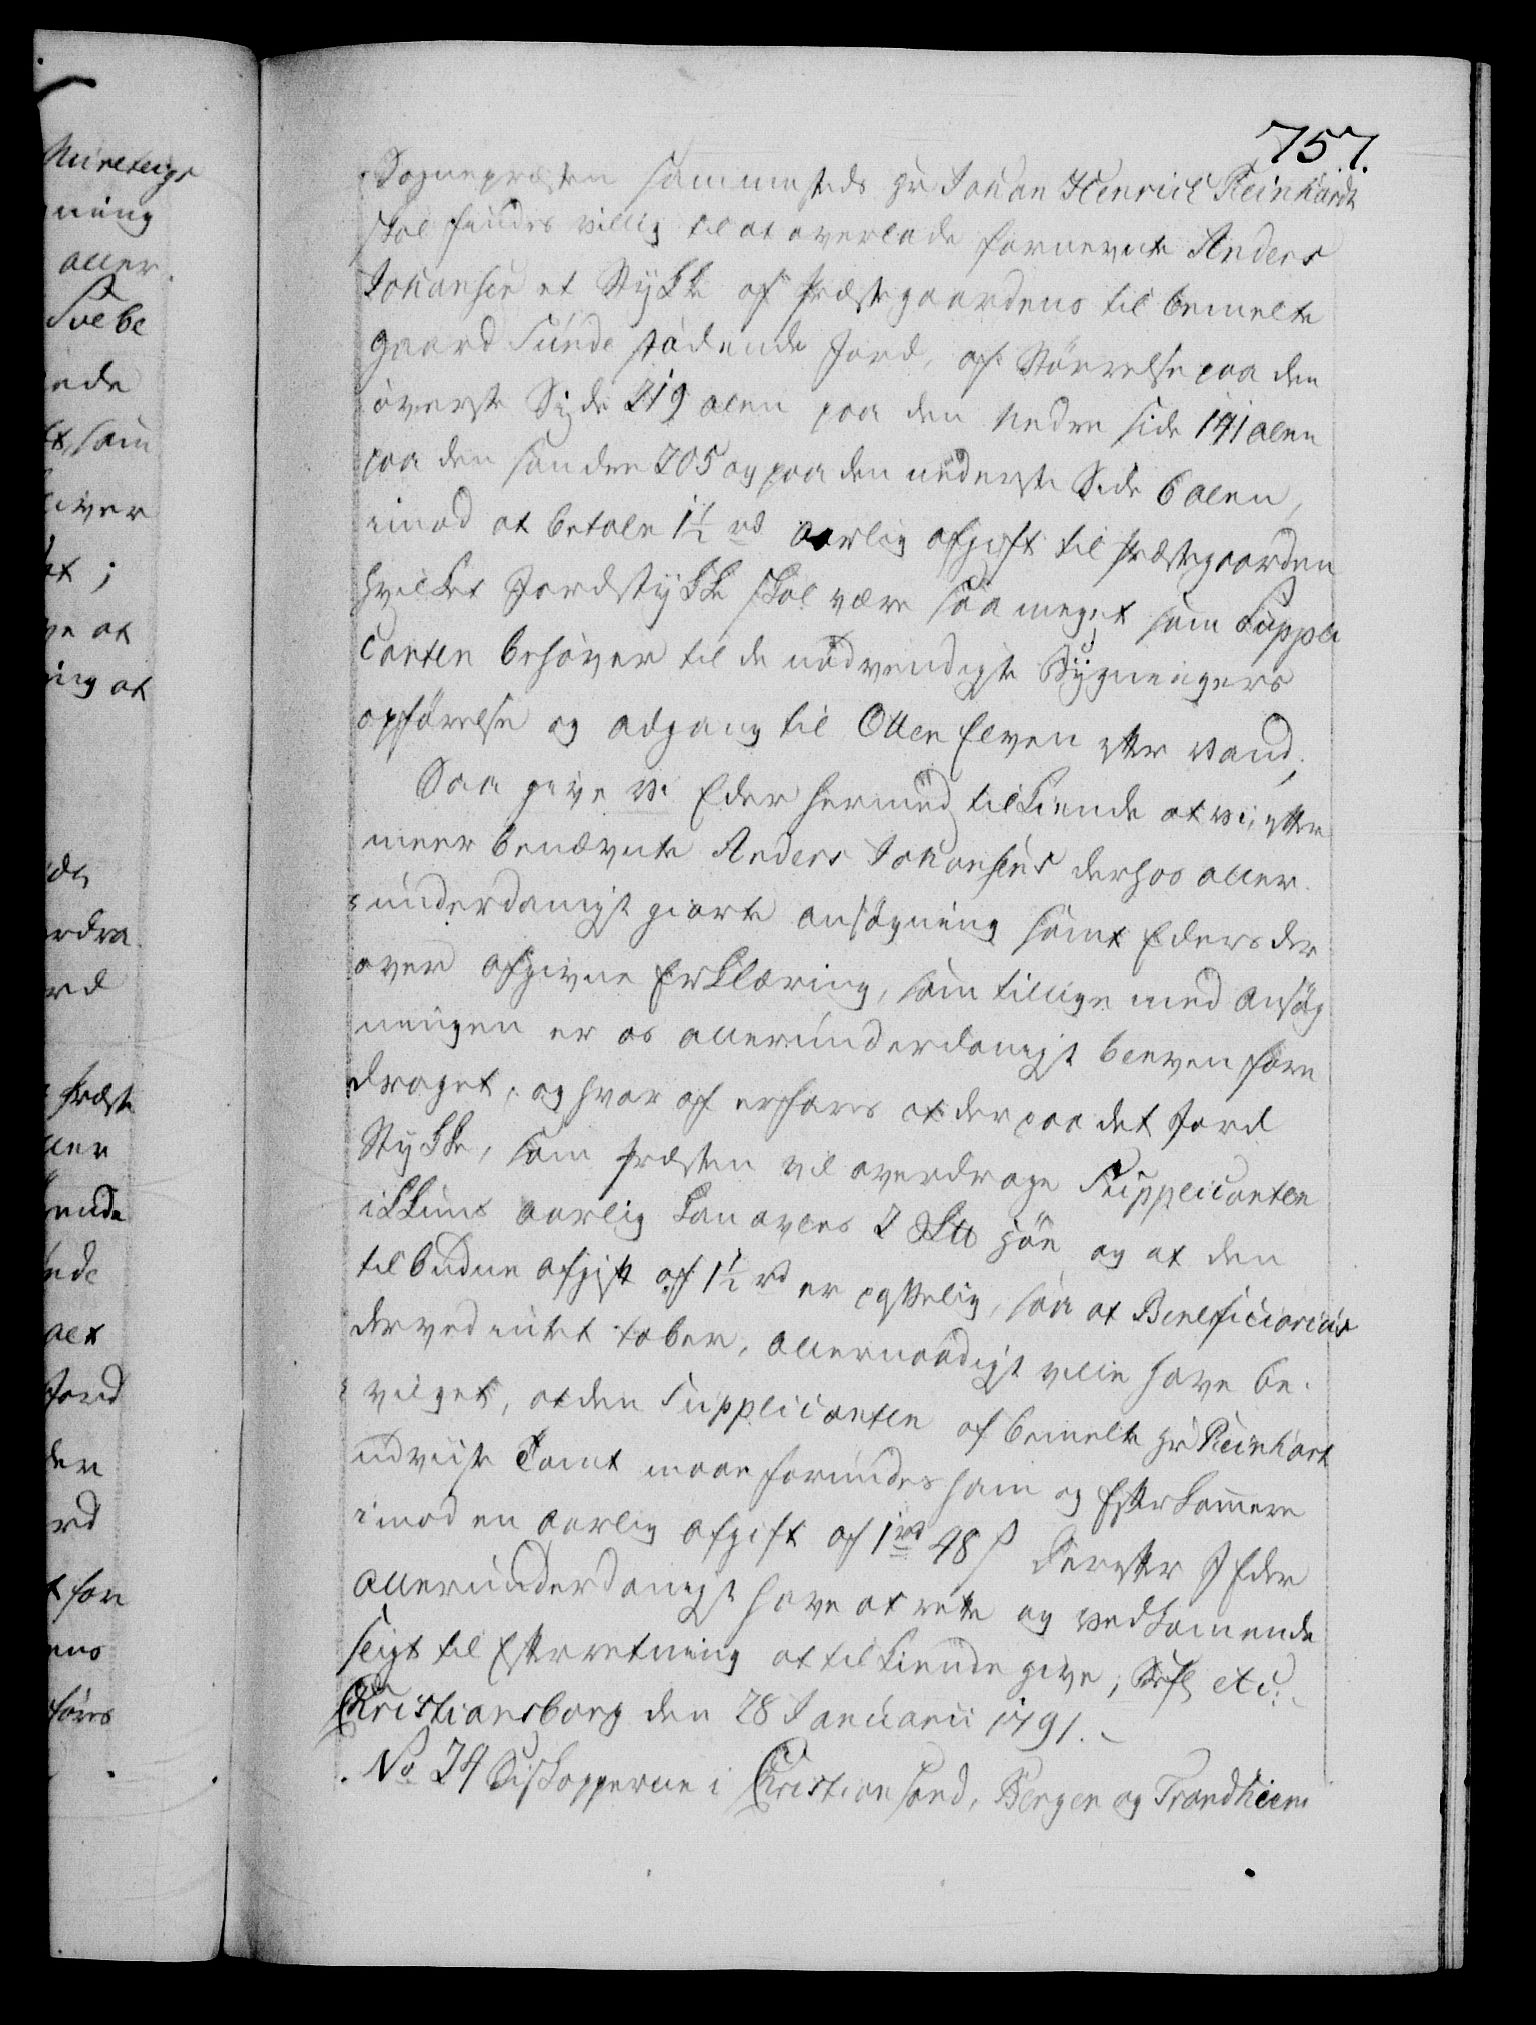 757.
Sognepræsten sammesteds Hr Johan Henrich Reinhardt
skal findes villig til at overlade fornevnte Anders
Johansen et Stykke af Præstegaardens til bemelte
gaard Sunde stødende Jord, af Størrelse paa den
øverste Side 219 alen paa den nedre side 141 alen
paa den søndre 205 og paa den nederste Side 6 alen,
imod at betale 1½ rd aarlig afgift til Præstegaarden
hvilket Jordstykke skal være saa meget som Suppli
canten behøver til de nødvendigste Bygningers
opførelse og adgang til Otten Elven etter Vand,
Saa give Vi Eder hermed tilkiende at vi, efter
meer benævnte Anders Johansens derhos aller
underdanigst giorte ansøgning samt Eders der
over afgivne Erklæring, som tillige med Ansøg
ningen er os allerunderdanigst bleven fore
draget, og hvor af erfares at der paa det Jord
Stykke, som Præsten vil overdrage Supplicanten
ikkuns aarlig kan avles 2 Læs Høe og at den
tilbudne afgift af 1½ rd er passelig, saa at Beneficiarius
derved intet taber, allernaadigst ville have be
vilget, at den Supplicanten af bemelte Hr Reinhart
udviiste Tomt maae forundes ham og Efterkommere
imod en aarlig afgift af 1 rd 48 s Derefter I Eder
allerunderdanigst have at rette og vedkommende
sligt til Efterretning at tilkiende give; Befl. etc.
Christiansborg den 28 Januarii 1791.
No 24 Biskopperne i Christiansand, Bergen og Trondhiem